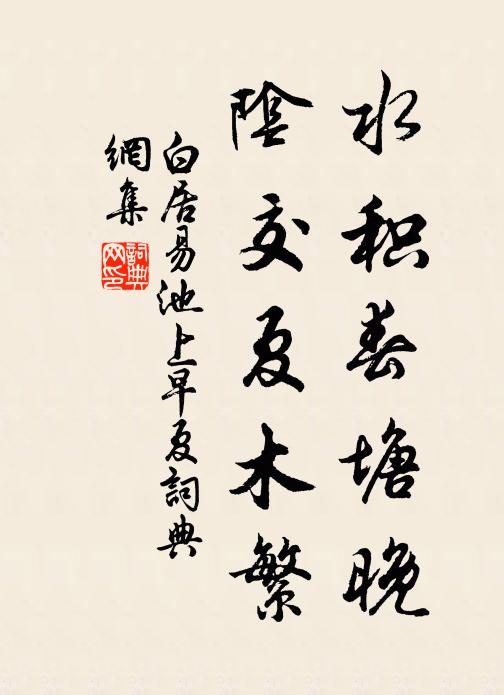 水积春塘晚
陰交夏木繁
白居易池上早夏詞典
網集
詞典
网印